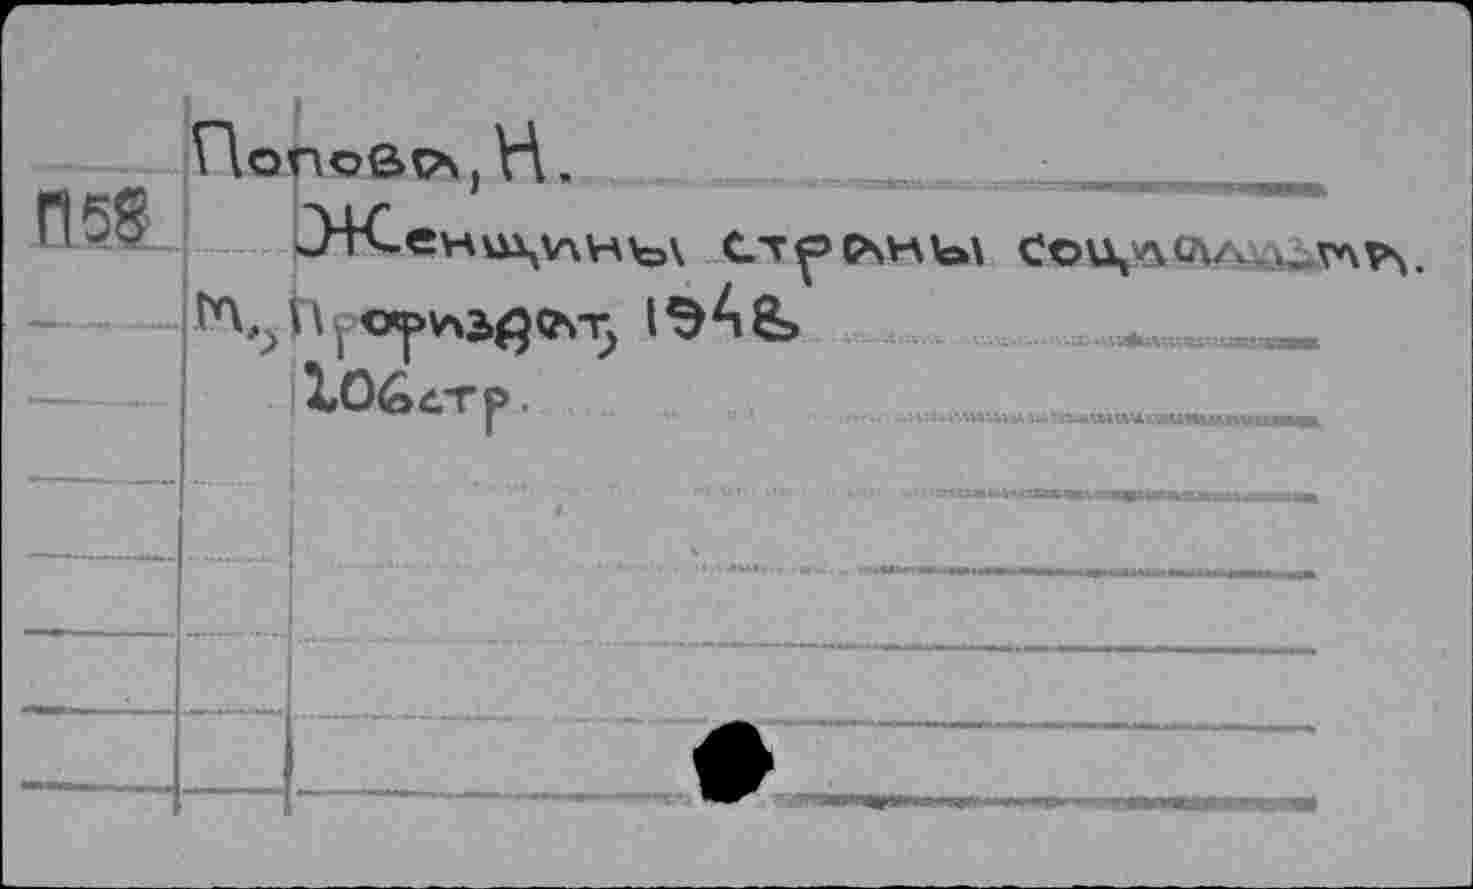 Попова, Н.
П58
Женщины страны социализма.
М., Профиздат, 1948
206стр.